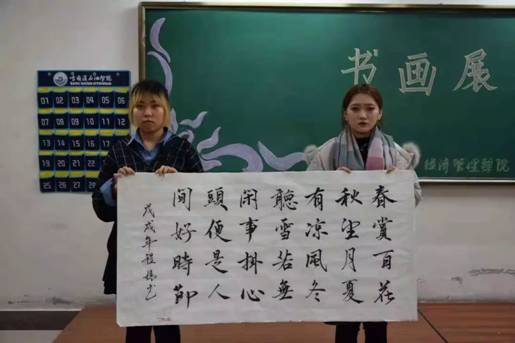 书画展
经济管理学院
哈尔滨石油学院
Harbin Institute of Petroleum
01 02 03 04 05 06
07 08 09 10 11 12
13 14 15 16 17 18
19 20 21 22
25 26 27 28
春賞百花
秋望月夏
有凉風冬
聽雪若無
闲事掛心
頭便是人
间好時節
戊戌年程书